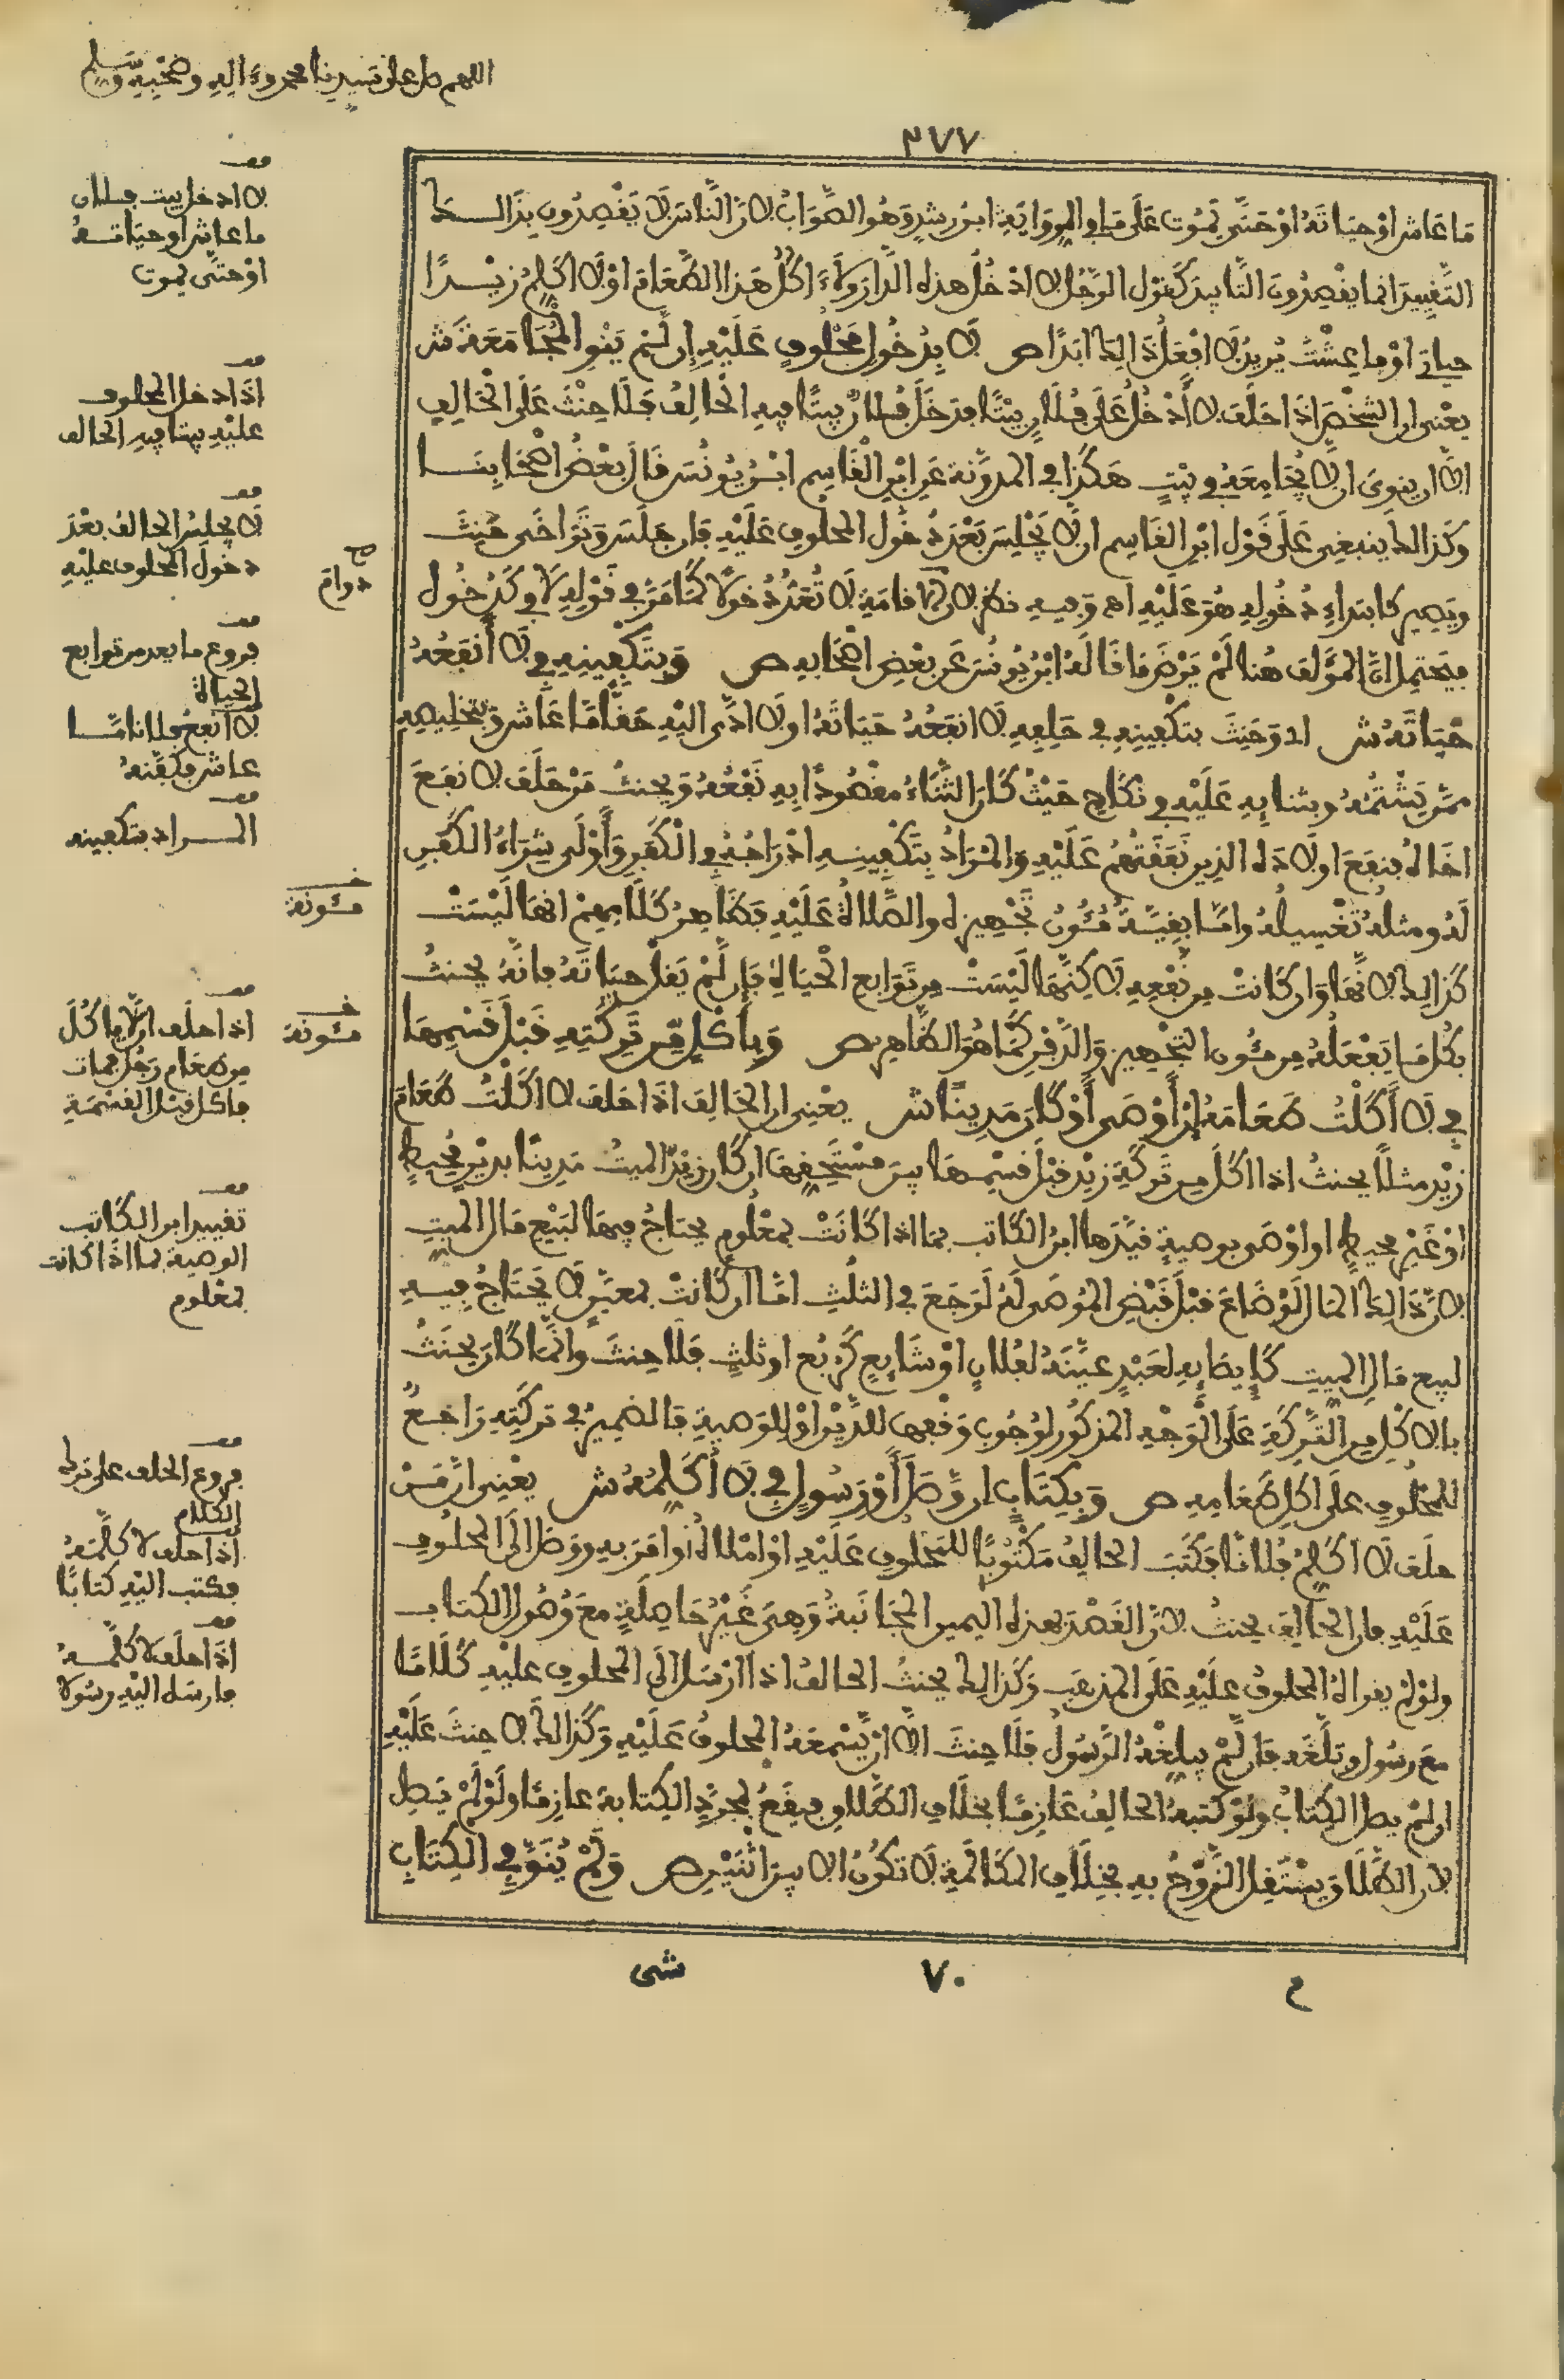 اللهم صل على سيدنا محمد وءاله وصحبه وسلم
٣٧٧
ما عاش او حياته او حتى يموت على ما في الرواية ابن رشد وهو الصواب لان الناس لا يقصدون بذالك
التقييد انما يقصدون التابيد كقول الرجل لا ادخل هذه الدار ولا ءاكل هذا الطعام او لا اكلم زيدا
حياتي او ما عشت يريد لا افعل ذالك ابدا ص لا بدخول محلوف عليه إن لم ينو المجامعة ش
يعني ان الشخص اذا حلف لا أدخل على فلان بيتا فدخل فلان بيتا فيه الحالف فلا حنث على الحالف
الا ان ينوي ان لا يجامعه في بيت هكذا في المدونة عن ابن القاسم ابن يونس قال بعض اصحابنا
وكذالك ينبغي على قول ابن القاسم ان لا يجلس بعد دخول المحلوف عليه فان جلس وتراخى حنث
ويصير كابتداء دخوله هو عليه اه وفيه نظر لان الاقامة لا تعد دخولا كما مر في قوله لا في كدخول
فيحتمل ان المؤلف هنا لم يرتض ما قاله ابن يونس عن بعض اصحابه ص وبتكفينه في لا أنفعه
حياته ش اي وحنث بتكفينه في حلفه لا انفعه حياته او لا ادى اليه حقا ما عاش وبتخليصه
ممن يشتمه وبثنائه عليه في نكاح حيث كان الثناء مقصودا به نفعه ويحنث من حلف لا نفع
اخاه بنفع اولاده الذين نفقتهم عليه والمراد بتكفينه ادراجه في الكفن وأولى شراء الكفن
له ومثله تغسيله واما بقية مئون تجهيزه والصلاة عليه فظاهر كلامهم انها ليست
كذالك لانها وان كانت من نفعه لاكنها ليست من توابع الحياة فإن لم يقل حياته فانه يحنث
بكل ما يفعله من مئون التجهيز والدفن كما هو الظاهر ص وبأكل من تركته قبل قسمها
في لا أكلت طعامه إن أوصى أو كان مدينا ش يعني ان الحالف اذا حلف لا اكلت طعام
زيد مثلا يحنث اذا اكل من تركة زيد قبل قسمها بين مستحقيها ان كان زيد الميت مدينا بدين محيط
او غير محيط او اوصى بوصية قيدها ابن الكاتب بما اذا كانت بمعلوم يحتاج فيها لبيع مال الميت
لان ذالك المال لو ضاع قبل قبض الموصى له لرجع في الثلث اما ان كانت بمعين لا يحتاج فيه
لبيع مال الميت كإيصائه لعبد عينه لفلان او شائع كربع او ثلث فلا حنث وانما كان يحنث
بالاكل من التركة على الوجه المذكور لوجوب وقفها للدين او للوصية فالضمير في تركته راجع
للمحلوف على اكل طعامه ص وبكتاب ان وصل أو رسول في لا أكلمه ش يعني ان من
حلف لا اكلم فلانا فكتب الحالف مكتوبا للمحلوف عليه او املاه أو امر به ووصل الى المحلوف
عليه فان الحالف يحنث لان القصد بهذه اليمين المجانبة وهي غير حاصلة مع وصول الكتاب
ولو لم يقراه المحلوف عليه على المذهب وكذالك يحنث الحالف اذا ارسل الى المحلوف عليه كلاما
مع رسول وبلغه فان لم يبلغه الرسول فلا حنث الا ان يسمعه المحلوف عليه وكذالك لا حنث عليه
ان لم يصل الكتاب ولو كتبه الحالف عازما بخلاف الطلاق فيقع بمجرد الكتابة عازما ولو لم يصل
لان الطلاق يستقل الزوج به بخلاف المكالمة لا تكون الا بين اثنين ص ولم ينو في الكتاب
٧٠
شى
م
قف
لا ادخل بيت فلان
ما عاش او حياته
او حتى يموت
قف
اذا دخل المحلوف
عليه بيتا فيه الحالف
قف
لا يجلس الحالف بعد
دخول المحلوف عليه
صح
دوام
قف
فروع ما يعد من توابع
الحياة
لا انفع فلانا ما
عاش فكفنه
قف
المراد بتكفينه
خ
مئونة
قف
اذا حلف ان لا ياكل
من طعام رجل فمات
فاكل قبل القسمة
خ
مئونة
قف
تقييد ابن الكاتب
الوصية بما اذا كانت
بمعلوم
قف
فروع الحلف على ترك
الكلام
اذا حلف لا كلمه
فكتب اليه كتابا
قف
اذا حلف لا كلمه
فارسل اليه رسولا